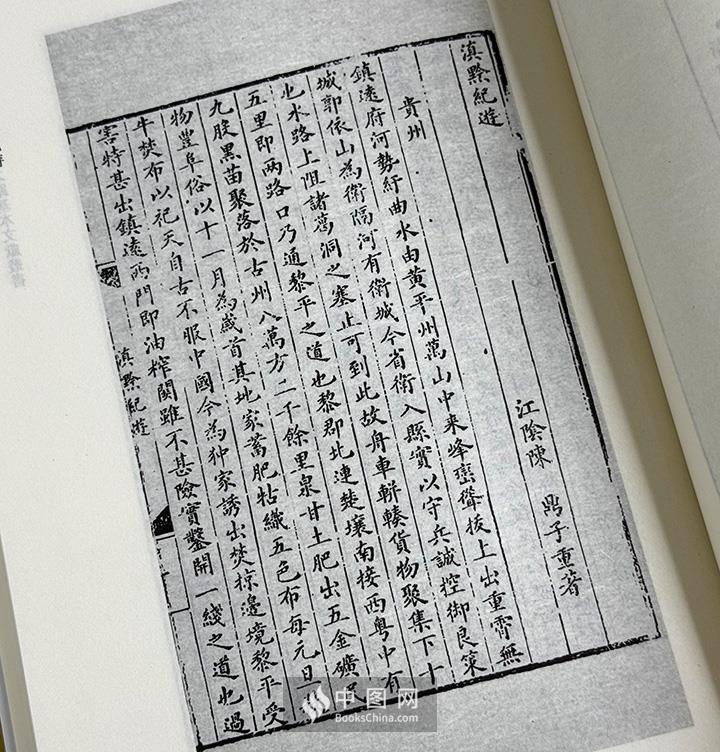 滇黔紀遊
江陰陳 鼎子重著
貴州
鎮遠府河勢紆曲水由黄平州萬山中来峰巒聳拔上出重霄無
城郭依山為衛隔河有衛城今省衛入縣實以守兵誠控御良策
也水路上阻諸葛洞之塞止可到此故舟車輧輳貨物聚集下十
五里即两路口乃通黎平之道也黎郡北連楚壤南接西粤中有
九股黒苗聚落於古州八萬方二千餘里泉甘土肥出五金礦
物豊阜俗以十一月為歲首其地家蓄肥牯織五色布每元旦
牛焚布以祀天自古不服中國今為狆家誘出焚掠邊境黎平受
害特甚出鎮遠西門即油榨関雖不甚險實鑿開一綫之道也過
滇黔紀遊
中图网
BooksChina.com